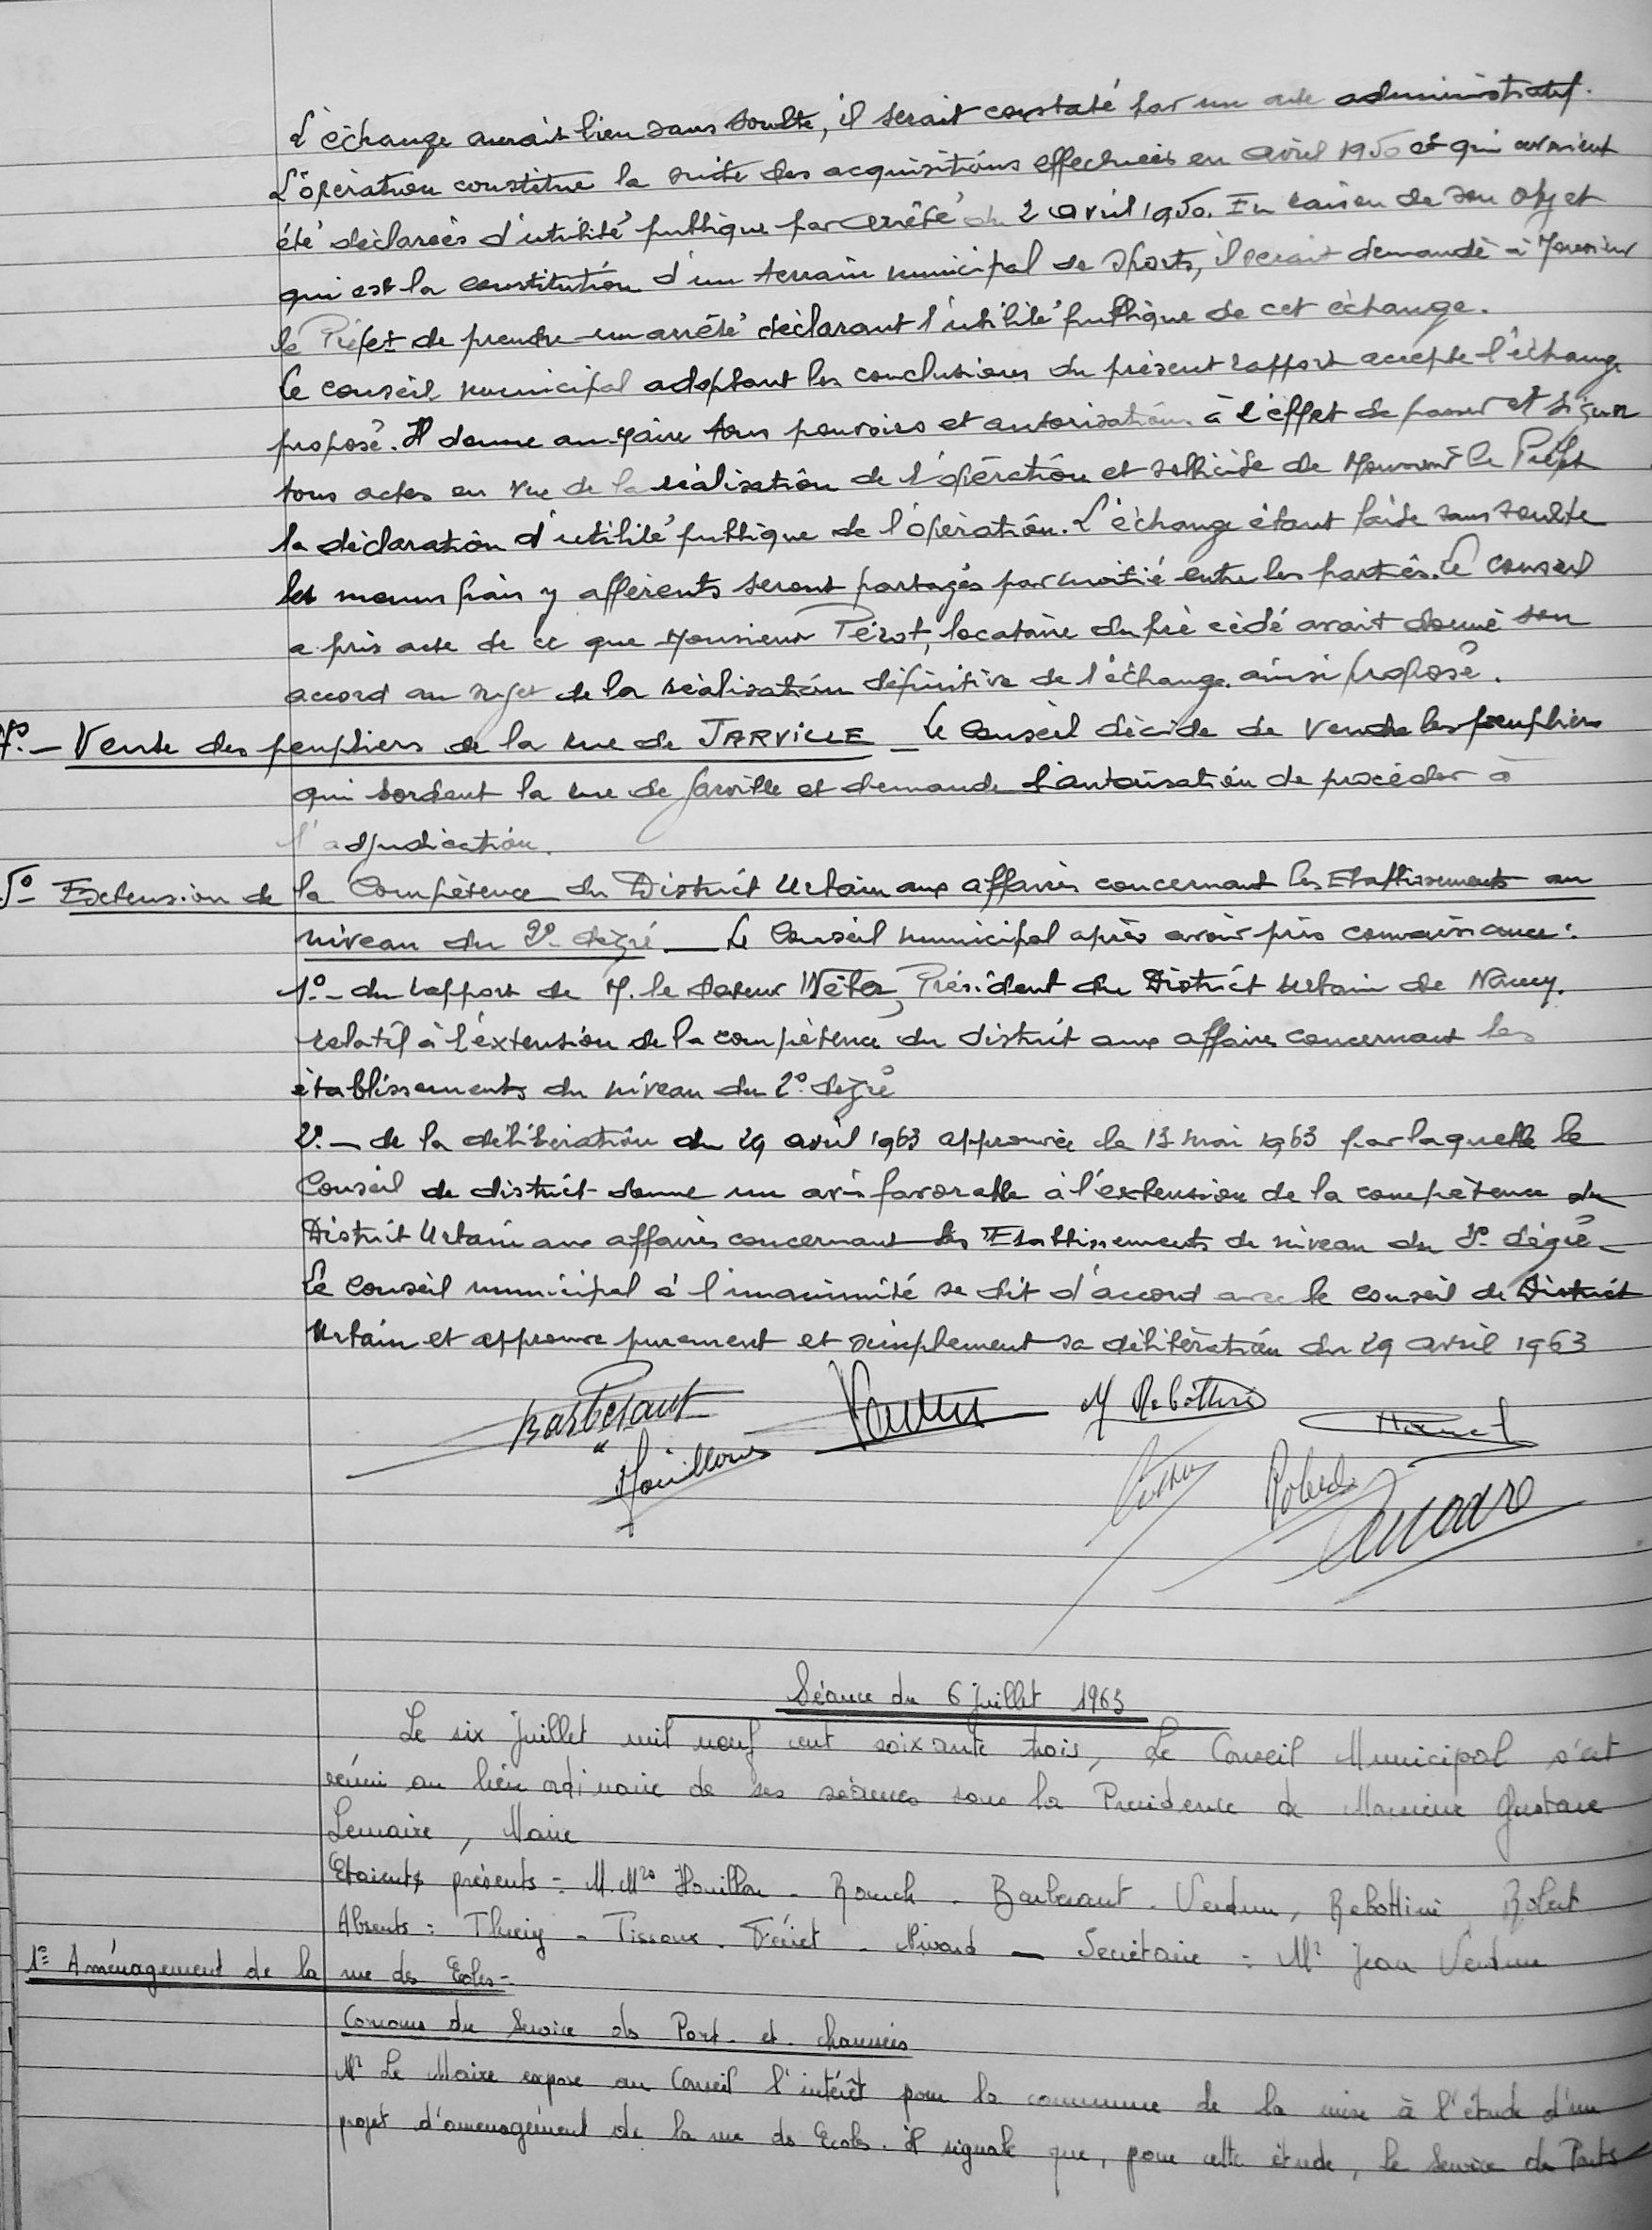 L'échange aurait lieu sans soulte, il serait constaté par un acte administratif.
L'opération constitue la suite des acquisitions effectuées en avril 1950 et qui avaient
été déclarées d'utilité publique par arrêté du 2 avril 1950. En raison de son objet
qui est la constitution d'un terrain municipal de sports, il serait demandé à Monsieur
le Préfet de prendre un arrêté déclarant l'utilité publique de cet échange.
Le conseil municipal adoptant les conclusions du présent rapport accepte l'échange
proposé. Il donne au Maire tous pouvoirs et autorisations à l'effet de passer et signer
tous actes en vue de la réalisation de l'opération et sollicite de Monsieur le Préfet
la déclaration d'utilité publique de l'opération. L'échange étant faite sans soulte
les menus frais y afférents seront partagés par moitié entre les parties. Le conseil
a pris acte de ce que Monsieur Pérot, locataire du pré cédé avait donné son
accord au sujet de la réalisation définitive de l'échange ainsi proposé.
Vente des peupliers de la rue de JARVILLE _ Le Conseil décide de vendre les peupliers
qui bordent la rue de Jarville et demande l'autorisation de procéder à
l'adjudication.
5° Extension de la Compétence du District Urbain aux affaires concernant les Etablissements au
niveau du 2° degré _ Le Conseil municipal après avoir pris connaissance :
1° - du rapport de M. le docteur Weber, Président du District Urbain de Nancy.
relatif à l'extension de la compétence du district aux affaires concernant les
établissements du niveau du 2° degré
2° - de la délibération du 29 avril 1963 approuvée le 13 mai 1963 par laquelle le
Conseil de district donne un avis favorable à l'extension de la compétence du
District Urbain aux affaires concernant les Etablissements de niveau du 2° degré -
Le Conseil municipal à l'unanimité se dit d'accord avec le conseil de District
Urbain et approuve purement et simplement sa délibération du 29 avril 1963
Barberaut M Rebottini
Houillon Robert
Séance du 6 juillet 1963
Le six juillet mil neuf cent soixante trois, Le Conseil Municipal s'est
réuni au lieu ordinaire de ses séances sous la Présidence de Monsieur Gustave
Lemaire, Maire
Etaients présents : M.Mrs Houillon - Rouch - Barberaut - Verdun, Rebottini Robert
Absents : Thiriey - Tissoux - Février - Nivard — Secrétaire : Mr Jean Verdun
1° Aménagement de la rue des Ecoles -
Concours du Service des Pont. et. chaussées
Mr Le Maire expose au Conseil l'intérêt pour la commune de la mise à l'étude d'un
projet d'aménagement de la rue des Ecoles. Il signale que, pour cette étude, le Service des Ponts